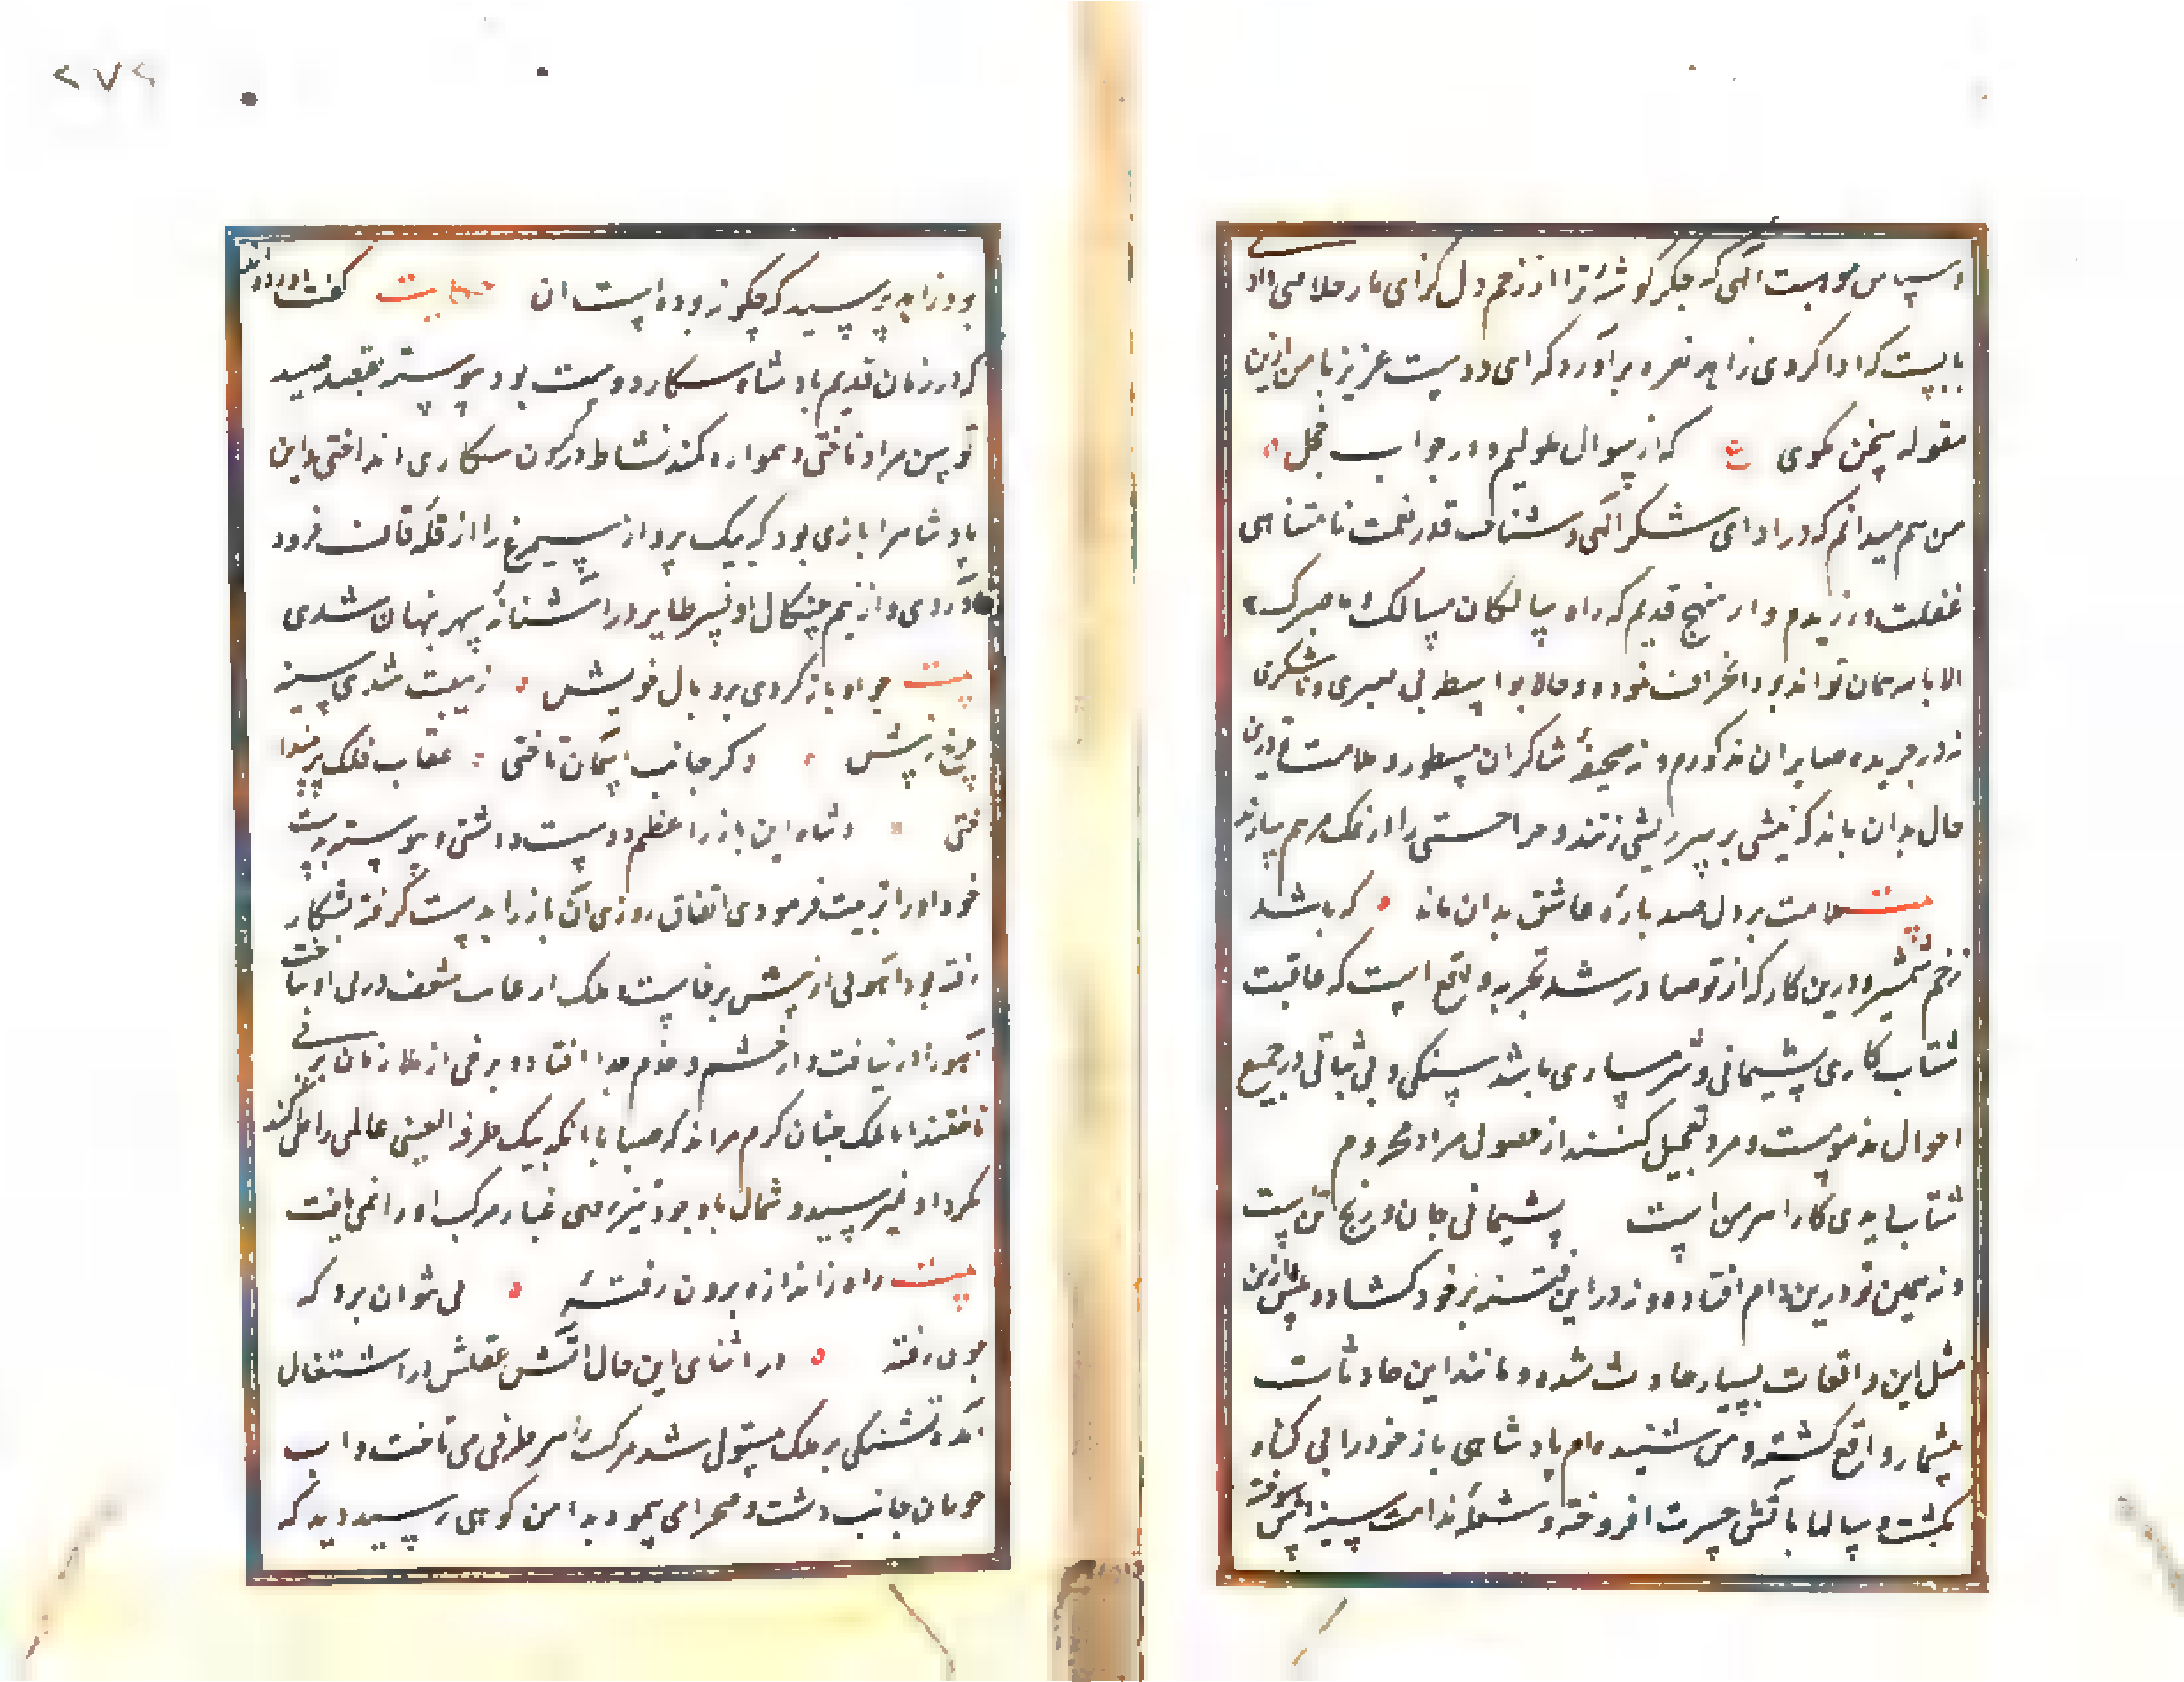 و سپاس موهبت الهی که جگر گوشهٔ ترا از زخم دل گزای مار خلاصی داد
بایست که ادا کردی زاهد نعره برآورد که ای دوست عزیز با من ازین
مقوله سخن مگوی ع که از سوال ملولیم و در جواب خجل
من هم میدانم که در ادای شکر الهی و شناخت قدر نعمت نامتناهی
غفلت ورزیدم و از منهج قدیم که راه سالکان مسالک
الا باسمان تواند بود انحراف نموده و حالا بواسطه بی صبری و ناشکری
نه در جریده صابران مذکورم و نه در صحیفهٔ شاکران مسطور و ملامت تو درین
حال بدان ماند که نیشی بر سر ریشی زنند و جراحتی را از نمک مرهم سازند
بیت ملامت بر دل صد پارهٔ عاشق بدان ماند که باشد
زخم شمشیر و درین کار که از تو صادر شد تجربه واقع است که عاقبت
شتاب کاری پشیمانی و شرمساری باشد و سبکی و بی ثباتی در جمیع
احوال مذموست و مرد تعجیل کننده از حصول مراد محروم
شتاب بدی کار اهرمن است پشیمانی جان و رنج تن است
و نه همین تو درین دام افتاده و نه در این فتنه بر خود گشاده پیش ازین
مثل این واقعات بسیار حادث شده و مانند این حادثات
بیشمار واقع گشته و من شنیده‌ام پادشاهی باز خود را بی گناه
بکشت و سالها بآتش حسرت افروخته و شعله ندامت سینه‌اش سوخته
بود زاهد پرسید که چگونه بوده است آن حکایت گفت آورده‌اند
که در زمان قدیم پادشاه شکار دوست بود پیوسته بقصد صید
توسن مراد تاختی و همواره کمند نشاط در گردن شکاری انداختی و این
پادشاه را بازی بود که بیک پرواز سیمرغ را از قله قاف فرود
آوردی و از بیم چنگال او نسر طایر در آشیانهٔ سپهر پنهان شدی
بیت چو او باز کردی پر و بال خویش ز هیبت شدی سینه
چرخ ریش وگر جانب آسمان تاختی عقاب فلک پر بیندا
ختی و شاه این باز را عظیم دوست داشتی و پیوسته بدست
خود او را تربیت فرمودی اتفاق روزی آن باز را بدست گرفته بشکار
رفته بود آهوئی از پیش برخاست ملک از غایت شعف در پی او بتاخت
آهو را در نیافت و از حشم و خدم جدا افتاده برخی از ملازمان در پی
تاختند اما ملک چنان گرم میراند که صبا با آنکه بیک طرفة العینی عالمی را طی کند
بگرد او نمیرسید و شمال با وجود تیزروی غبار مرکب او را نمی یافت
بیت راه ز اندازه برون رفتهٔ پی نتوان برد که
چون رفته در اثنای این حال آتش عطش در اشتعال
آمده تشنگی بر ملک مستولی شد مرکب را هر طرفی می تاخت و آب
جویان جانب دشت و صحرا می پیمود بدامن کوهی رسید دید که